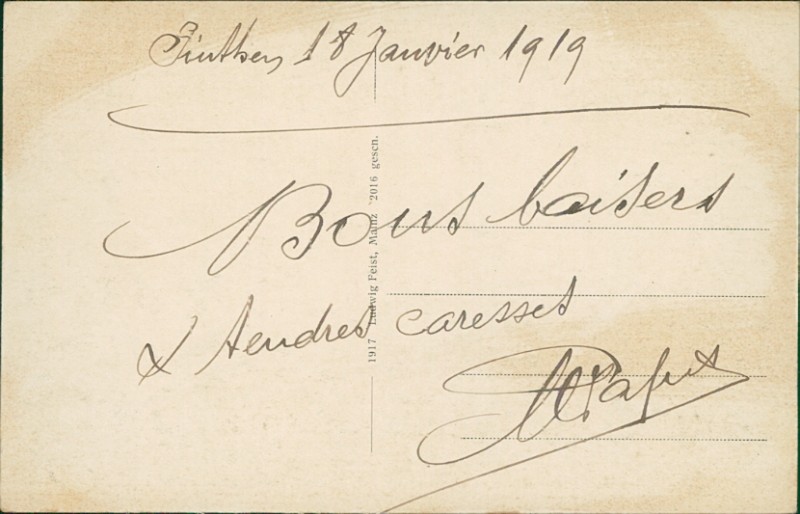 Finthen, 18 Janvier 1919
Bons baisers
& tendres caresses
1917 Ludwig Feist, Mainz 2016 gesch.